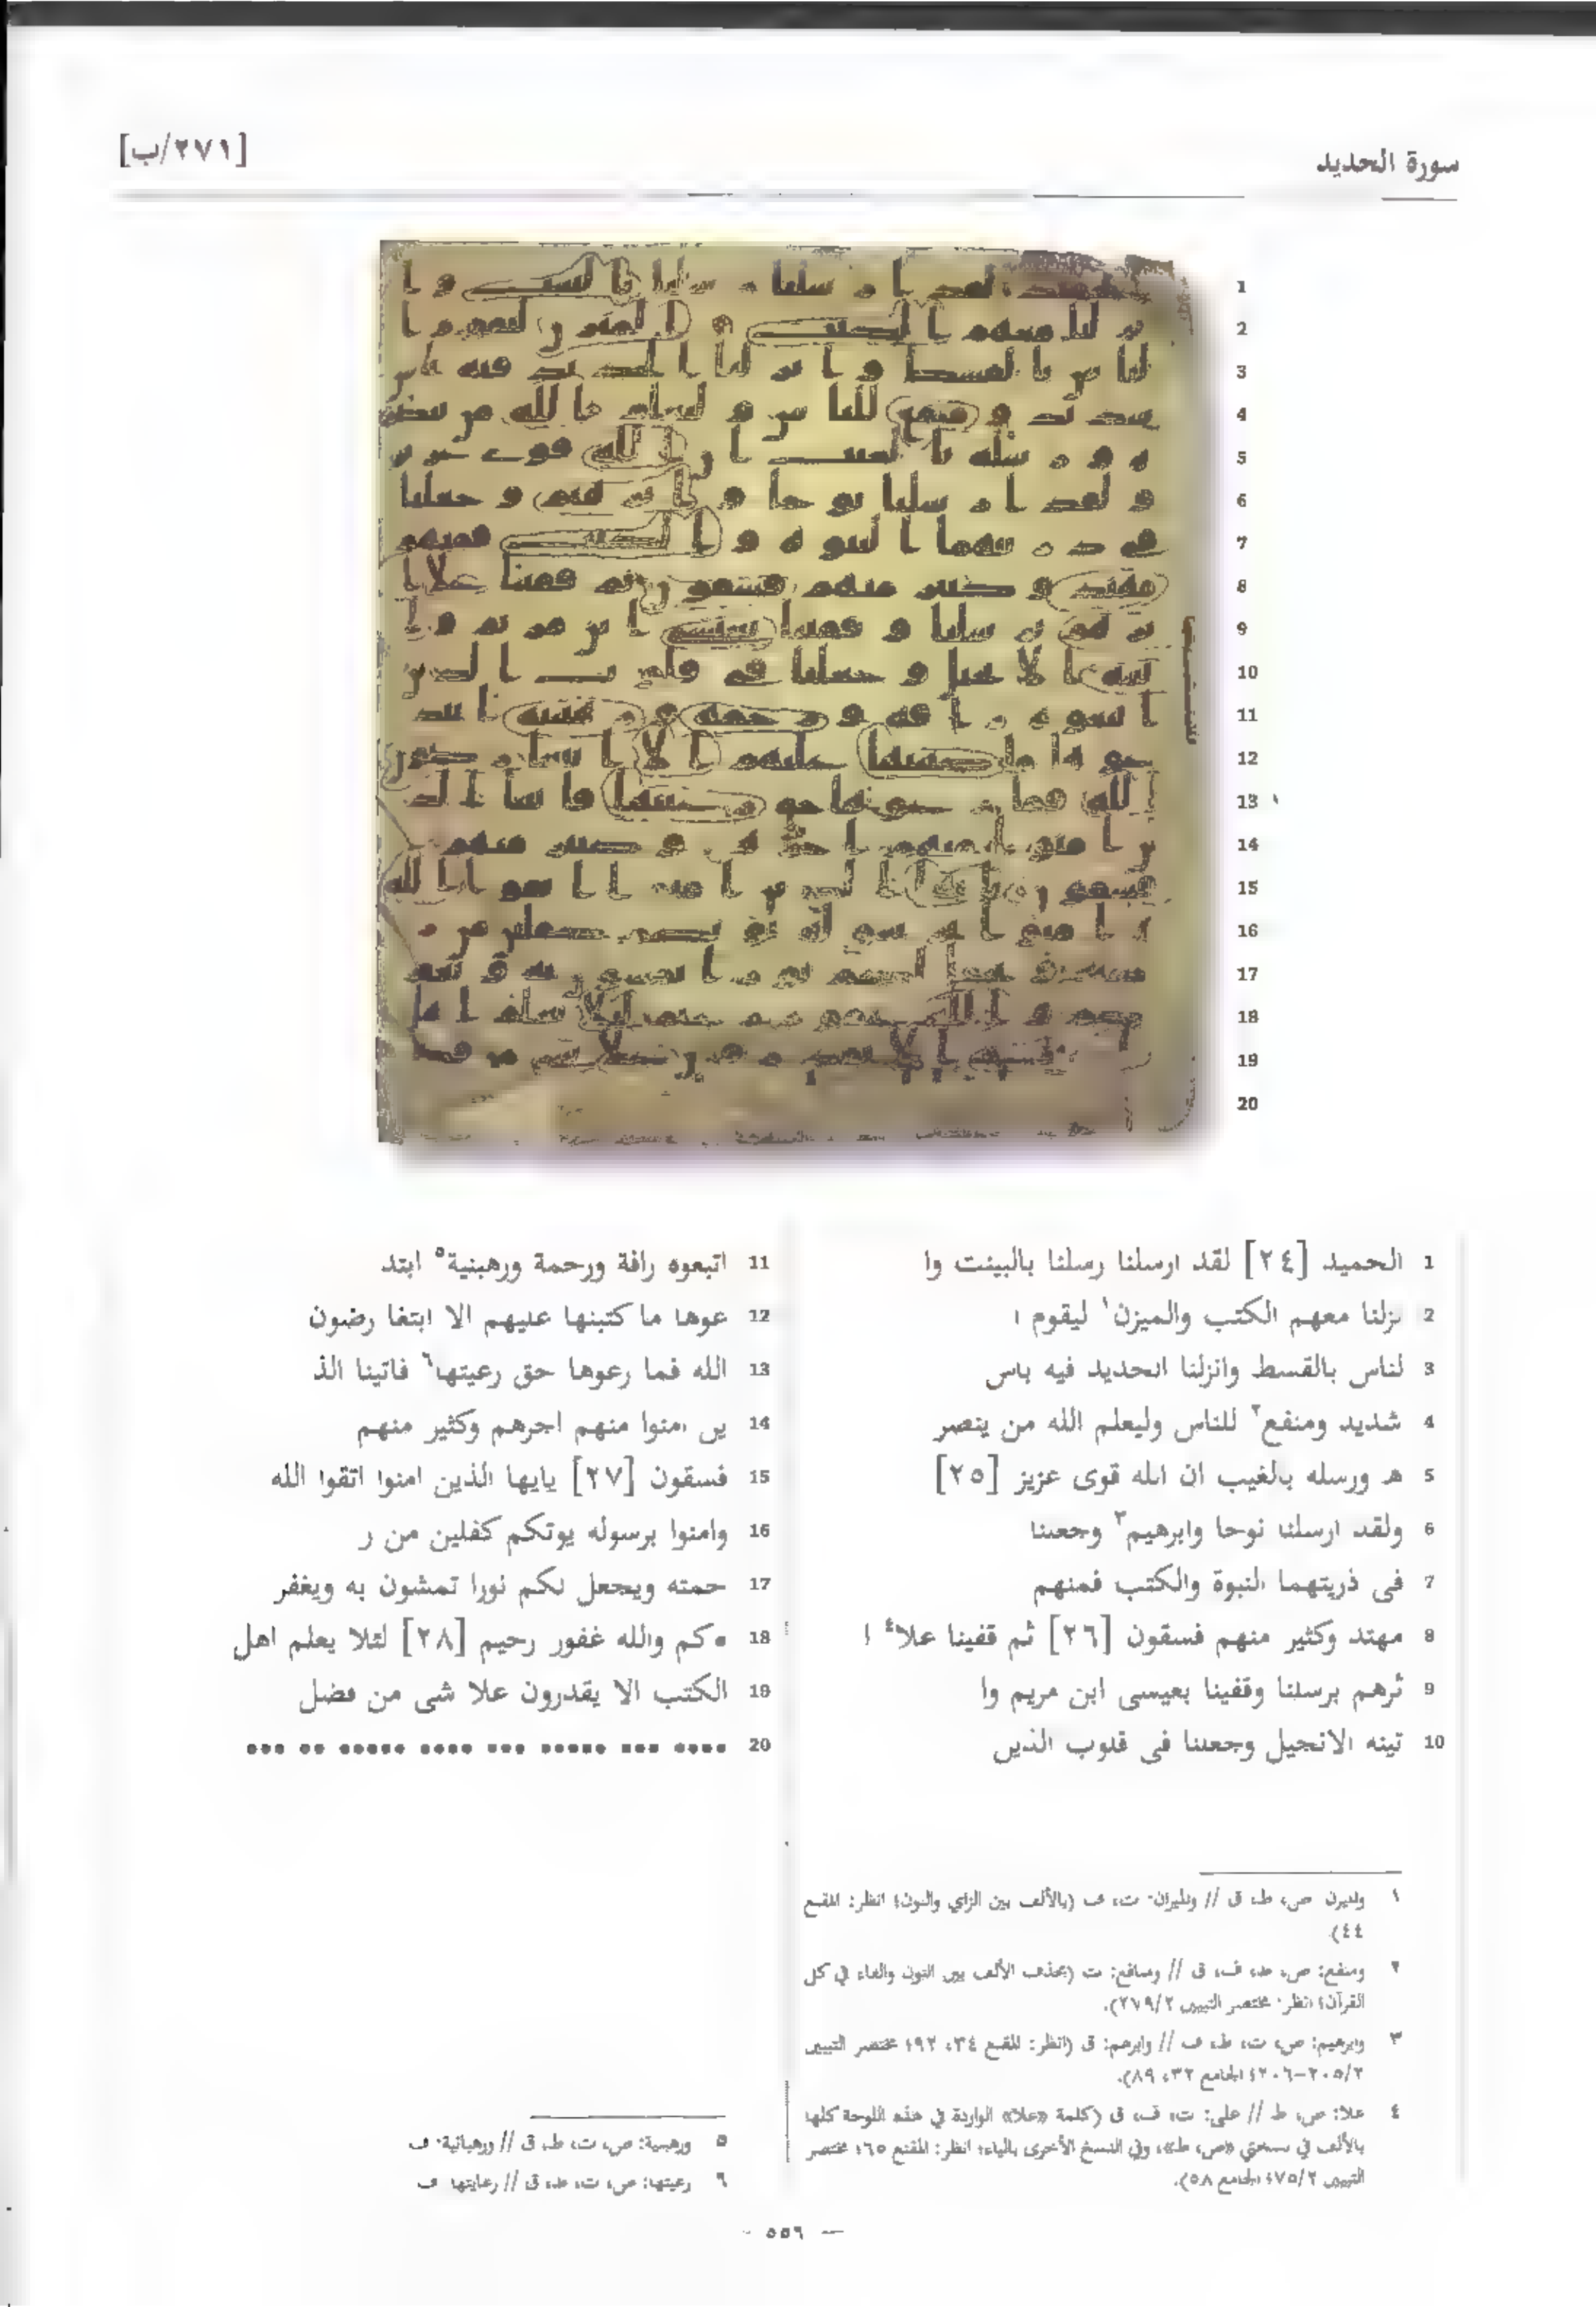 سورة الحديد
[٢٧١/ب]
1 الحميد [٢٤] لقد ارسلنا رسلنا بالبينت وا
2 نزلنا معهم الكتب والميزن١ ليقوم ا
3 لناس بالقسط وانزلنا الحديد فيه باس
4 شديد ومنفع٢ للناس وليعلم الله من ينصر
5 ه ورسله بالغيب ان الله قوى عزيز [٢٥]
6 ولقد ارسلنا نوحا وابرهيم٣ وجعلنا
7 فى ذريتهما النبوة والكتب فمنهم
8 مهتد وكثير منهم فسقون [٢٦] ثم قفينا علا٤ ا
9 ثرهم برسلنا وقفينا بعيسى ابن مريم وا
10 تينه الانجيل وجعلنا فى قلوب الذين
11 اتبعوه رافة ورحمة ورهبنية٥ ابتد
12 عوها ما كتبنها عليهم الا ابتغا رضون
13 الله فما رعوها حق رعيتها٦ فاتينا الذ
14 ين امنوا منهم اجرهم وكثير منهم
15 فسقون [٢٧] يايها الذين امنوا اتقوا الله
16 وامنوا برسوله يوتكم كفلين من ر
17 حمته ويجعل لكم نورا تمشون به ويغفر
18 •كم والله غفور رحيم [٢٨] لئلا يعلم اهل
19 الكتب الا يقدرون علا شى من فضل
20 •••• ••• ••••• ••• •••• ••••• •• •••
١ والميزن: ص، ط، ق // والميزان: ت، ف (بالألف بين الزاي والنون؛ انظر: المقنع
٤٤).
٢ ومنفع: ص، ط، ف، ق // ومنافع: ت (بحذف الألف بين النون والفاء في كل
القرآن؛ انظر: مختصر التبيين ٢٧٩/٢).
٣ وابرهيم: ص، ت، ط، ف // وابرهم: ق (انظر: المقنع ٣٤، ٩٢؛ مختصر التبيين
٢٠٥/٢-٢٠٦؛ الجامع ٣٢، ٨٩).
٤ علا: ص، ط // على: ت، ف، ق (كلمة «علا» الواردة في هذه اللوحة كلها
بالألف في نسختي «ص، ط»، وفي النسخ الأخرى بالياء؛ انظر: المقنع ٦٥؛ مختصر
التبيين ٧٥/٢؛ الجامع ٥٨).
٥ ورهبنية: ص، ت، ط، ق // ورهبانية: ف
٦ رعيتها: ص، ت، ط، ق // رعايتها: ف
— ٥٥٦ —